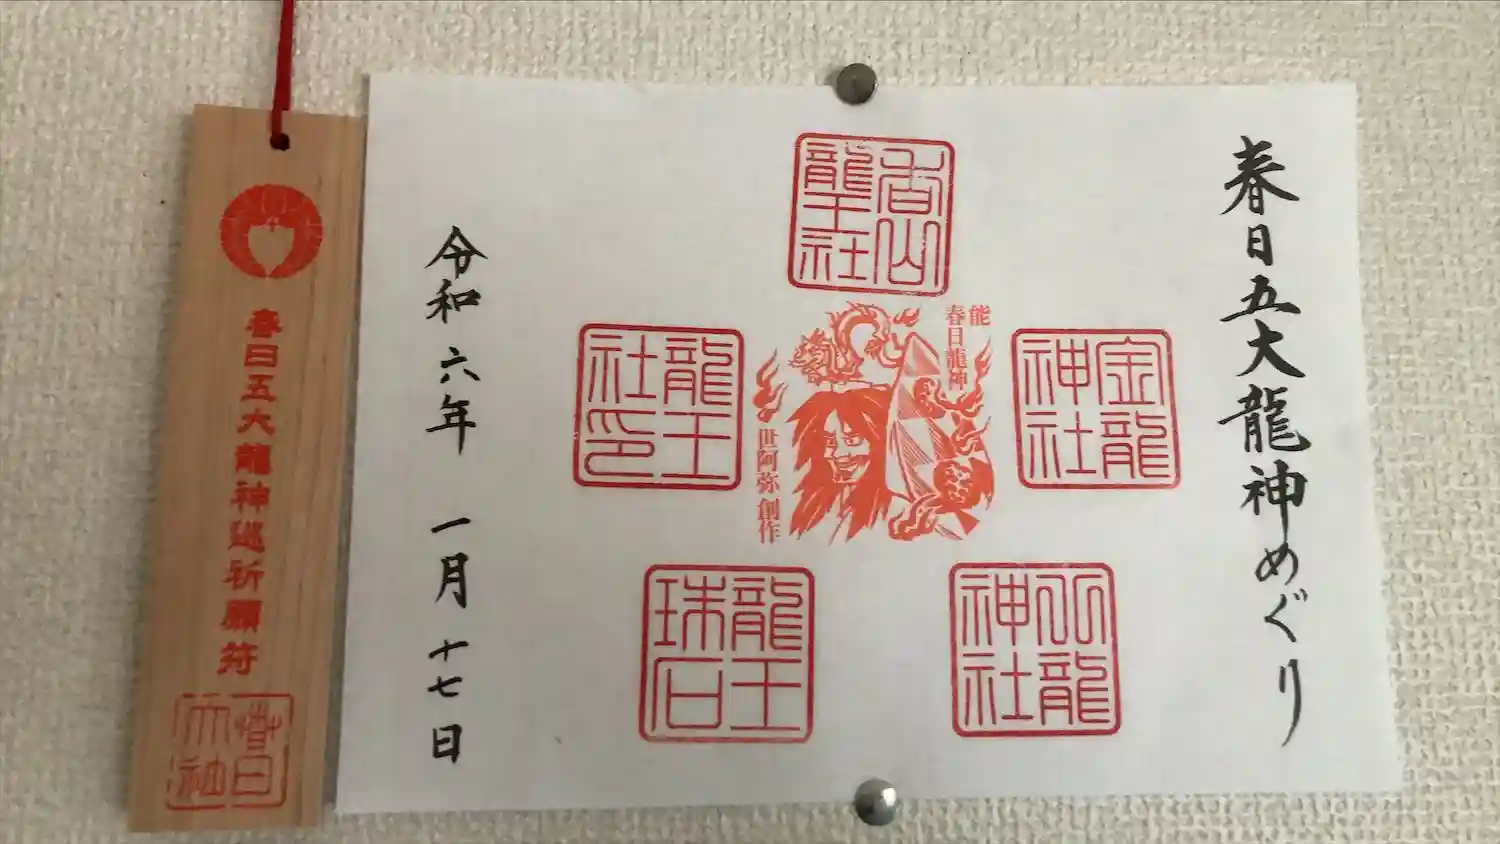 春日五大龍神めぐり
香山龍王社
金龍神社
能
春日龍神
世阿弥 創作
龍王社印
龍王珠石
龍神社
令和六年 一月 十七日
春日五大龍神巡祈願符
春日大社